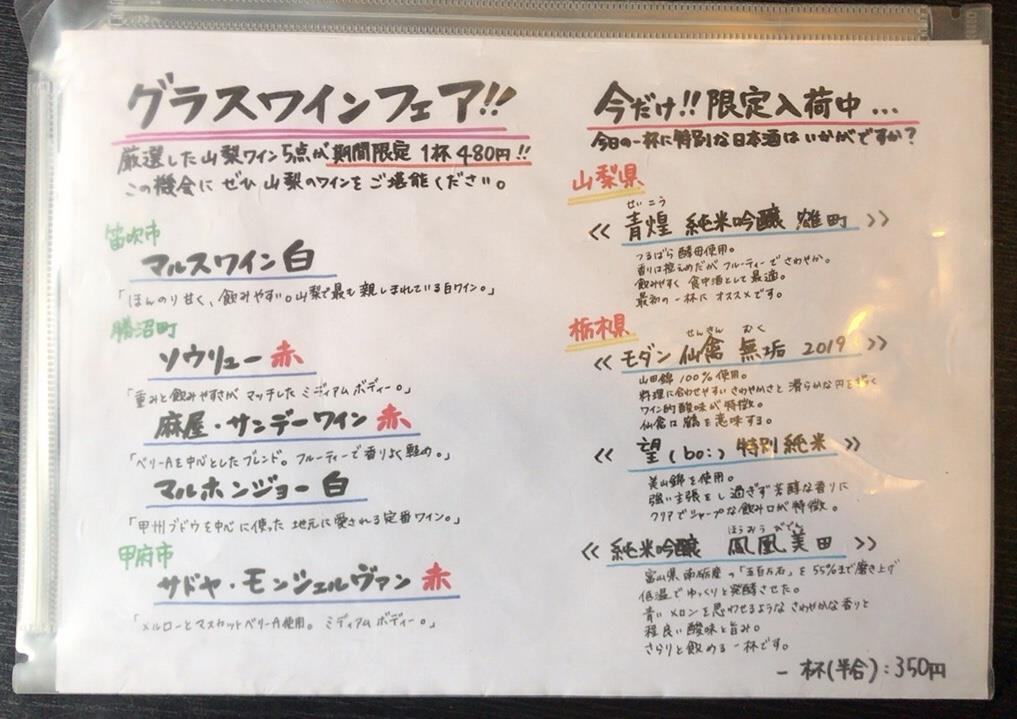 グラスワインフェア!!
厳選した山梨ワイン5点が期間限定1杯480円!!
この機会にぜひ山梨のワインをご堪能ください。
笛吹市
マルスワイン白
「ほんのり甘く、飲みやすい。山梨で最も親しまれている白ワイン。」
勝沼町
ソウリュー赤
「重みと飲みやすさがマッチしたミディアムボディー。」
麻屋・サンデーワイン赤
「ベリーAを中心としたブレンド。フルーティーで香りよく軽め。」
マルホンジョー白
「甲州ブドウを中心に使った地元に愛される定番ワイン。」
甲府市
サドヤ・モンシェルヴァン赤
「メルローとマスカットベリーA使用。ミディアムボディー。」
今だけ!!限定入荷中...
今日の一杯に特別な日本酒はいかがですか?
山梨県
せいこう
≪青煌 純米吟醸 雄町≫
つるばら酵母使用。
香りは控えめだがフルーティーでさわやか。
飲みやすく食中酒として最適。
最初の一杯にオススメです。
栃木県
せんきん むく
≪モダン仙禽 無垢 2019≫
山田錦100%使用。
料理に合わせやすいさわやかさと滑らかな
ワイン的酸味が特徴。
仙禽は鶴を意味する。
≪望(bo:)特別純米≫
美山錦を使用。
強い主張をし過ぎず芳醇な香りに
クリアでシャープな飲み口が特徴。
ほうおう びでん
≪純米吟醸 鳳凰美田≫
富山県南砺産の「五百万石」を55%まで磨き上げ
低温でゆっくりと発酵させた。
青いメロンを思わせるようなさわやかな香りと
程良い酸味と旨み。
さらりと飲める一杯です。
一杯(半合):350円